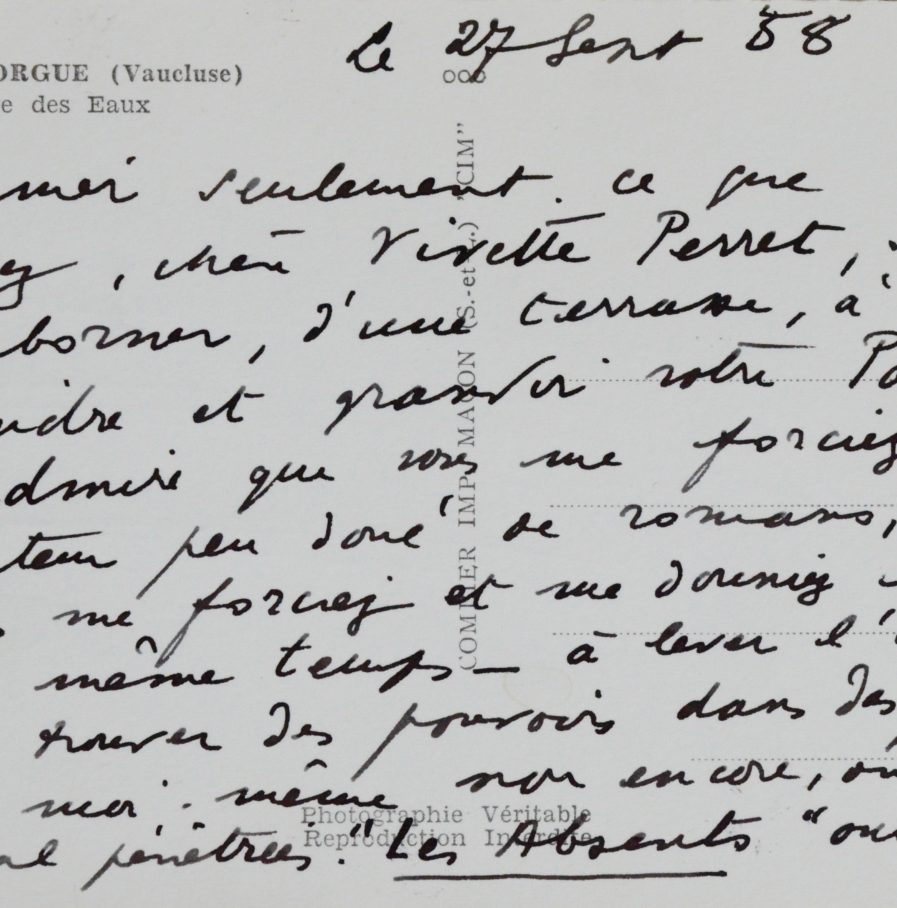 Le 27 Sept 58
ORGUE (Vaucluse)
e des Eaux
COMBIER IMP. MACON (S.-et-L.) "CIM"
seulement ce que
ez, chère Vivette Perret,
borner, d'une terrasse, à
indre et grandir votre Pa
dmire que vous me forciez
teur peu doué de romans,
me forciez et me donniez
même temps — à lever l'
trouver des pouvoirs dans des
moi-même non encore, ou
al pénétrées. "Les Absents" ou
Photographie Véritable
Reproduction Interdite